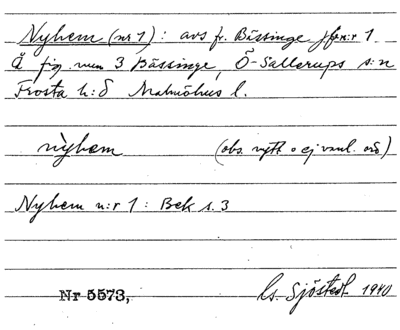 Nyhem (nr 1): avs fr. Bässinge nr 1
Å fig. num 3 Bässinge, Ö-Sallerups s:n
Frosta h:d Malmöhus l.
nỳhem (obs. rytm o ej vanl. ord)
Nyhem n:r 1: Bek s. 3
Nr 5573, Gs. Sjöstedt 1940